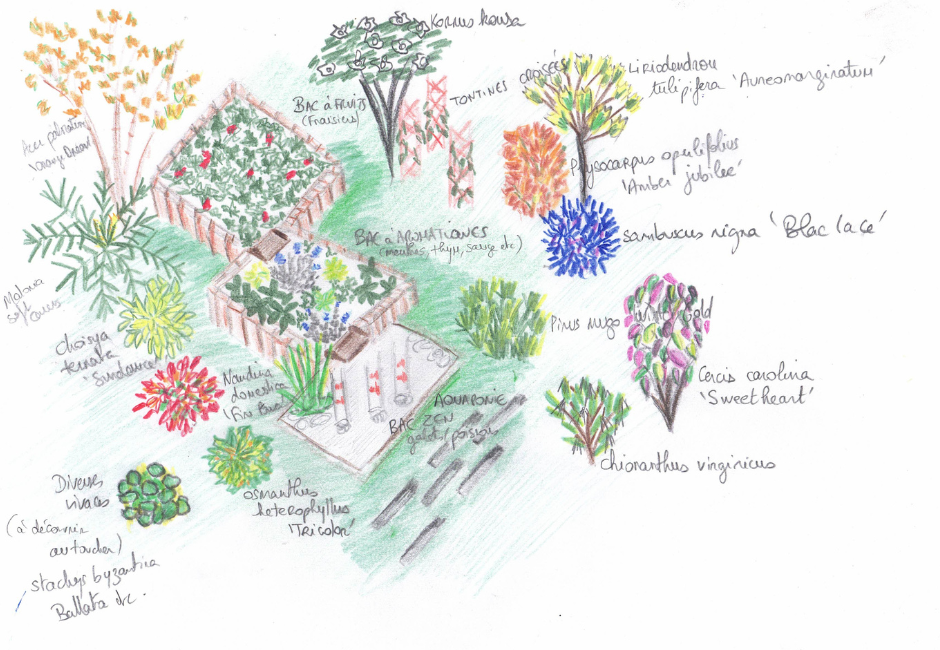 Kornus kousa
BAC à FRUITS
(Fraisiers)
TONTINES CROISÉES
Liriodendron
tulipifera 'Aureomarginatum'
Acer palmatum
'Orange Dream'
Physocarpus opulifolius
'Amber jubilee'
BAC à AROMATIQUES
(menthes, thym, sauge etc)
sambuscus nigra 'Blac lace'
Mahonia
soft
Caress
choisya
ternata
'Sundance'
Pinus mugo
Winter Gold
Nandina
domestica
'Fire
Cercis carolina
'Sweetheart'
AQUAPONIE
BAC ZEN
galets/poissons
chionanthus virginicus
osmanthus
heterophyllus
'Tricolor'
Diverses
vivaces
(à découvrir
au toucher)
stachys byzantica
Ballota etc.